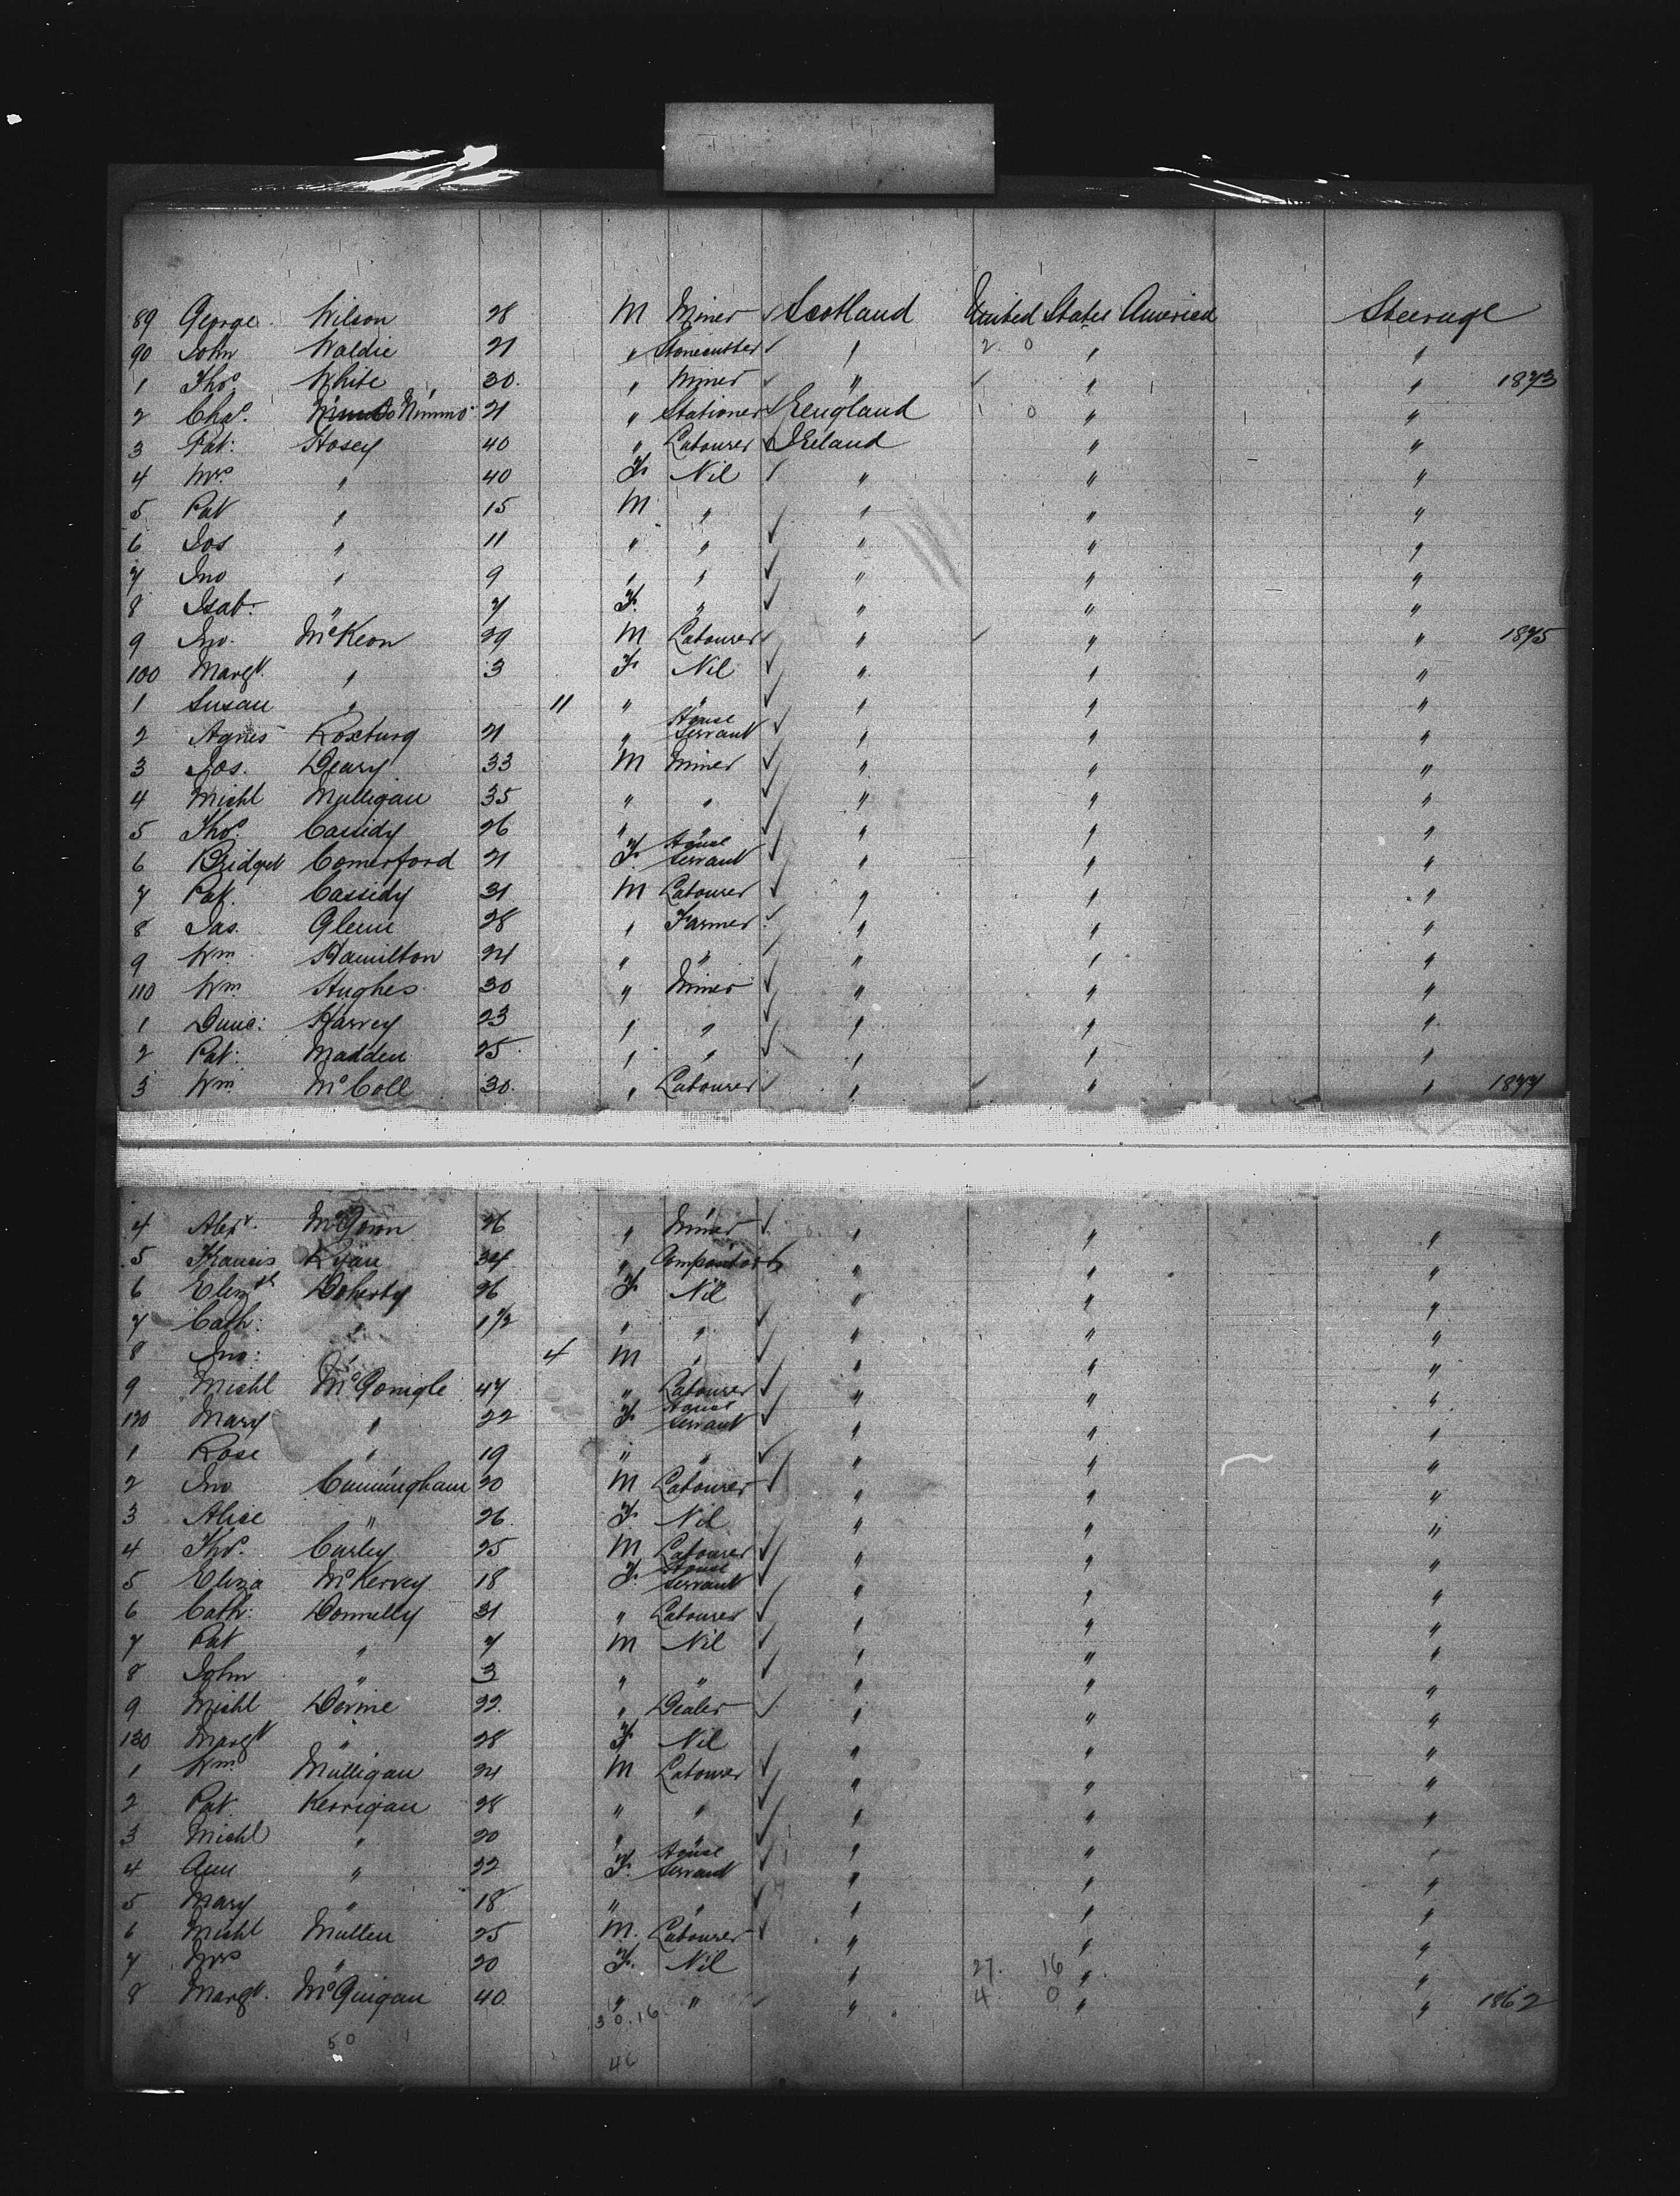 89 George Wilson 28 M Miner ✓ Scotland United States America Steerage
90 John Waldie 21 " Stonecutter ✓ " 2 0 " "
1 Thos White 30. " Miner ✓ " ✓ " " 1873
2 Chas. Nimmo 21 " Stationer ✓ England 1 0 " "
3 Pat: Hosey 40 " Labourer ✓ Ireland " "
4 Mrs " 40 F Nil ✓ " " "
5 Pat " 15 M " " " "
6 Jos " 11 " " ✓ " " "
7 Jno " 9 " " ✓ " " "
8 Isab: " 7 F. " ✓ " " "
9 Jno. McKeon 39 M Labourer ✓ " ✓ " " 1875
100 Margt. " 3 F Nil ✓ " " "
1 Susan " 11 " " ✓ " " "
2 Agnes Roxburg 21 " House Servant ✓ " " "
3 Jos. Deary 33 M Miner ✓ " " "
4 Michl Mulligan 35 " " ✓ " " "
5 Thos. Cassidy 26 " " ✓ " " "
6 Bridget Comerford 21 F. House Servant ✓ " " "
7 Pat. Cassidy 31 M Labourer ✓ " " "
8 Jas. Glenn 28 " Farmer ✓ " " "
9 Wm Hamilton 24 " " ✓ " " "
110 Wm. Hughes 30 " Miner ✓ " " "
1 Dunc: Harvey 23 " " ✓ " " "
2 Pat: Madden 25. " " ✓ " " "
3 Wm. McColl 30. " Labourer ✓ " ✓ " " 1877
4 Alexr. McGown 26 " Miner ✓ " " "
5 Francis Ryan 34 " Compositor ✓ " " "
6 Elizth Doherty 26 F Nil " " "
7 Cath: " 1½ " " ✓ " " "
8 Jno: " 4 M " ✓ " " "
9 Michl McGonigle 47 " Labourer ✓ " " "
120 Mary " 22 F House Servant ✓ " " "
1 Rose " 19 " " ✓ " " "
2 Jno Cunningham 20 M Labourer ✓ " " "
3 Alice " 26. F Nil " " "
4 Thos. Curley 25 M Labourer ✓ " " "
5 Eliza McKervey 18 F. House Servant ✓ " " "
6 Cath: Donnelly 31 " Labourer ✓ " " "
7 Pat " 7 M Nil ✓ " " "
8 John " 3 " " ✓ " " "
9 Michl Devine 32. " Dealer ✓ " " "
130 Margt " 28 F Nil " " "
1 Wm. Mulligan 24 M Labourer ✓ " " "
2 Pat. Kerrigan 28 " " ✓ " " "
3 Michl " 20 " " ✓ " " "
4 Ann " 22 F. House Servant ✓ " " "
5 Mary " 18 " " ✓ " " "
6 Michl Mullen 25 M. Labourer ✓ " " "
7 Mrs " 20 F. Nil " 27. 16 " "
8 Margt. McGuigan 40. " " ✓ " 4 0 " " 1862
30.16
50
46